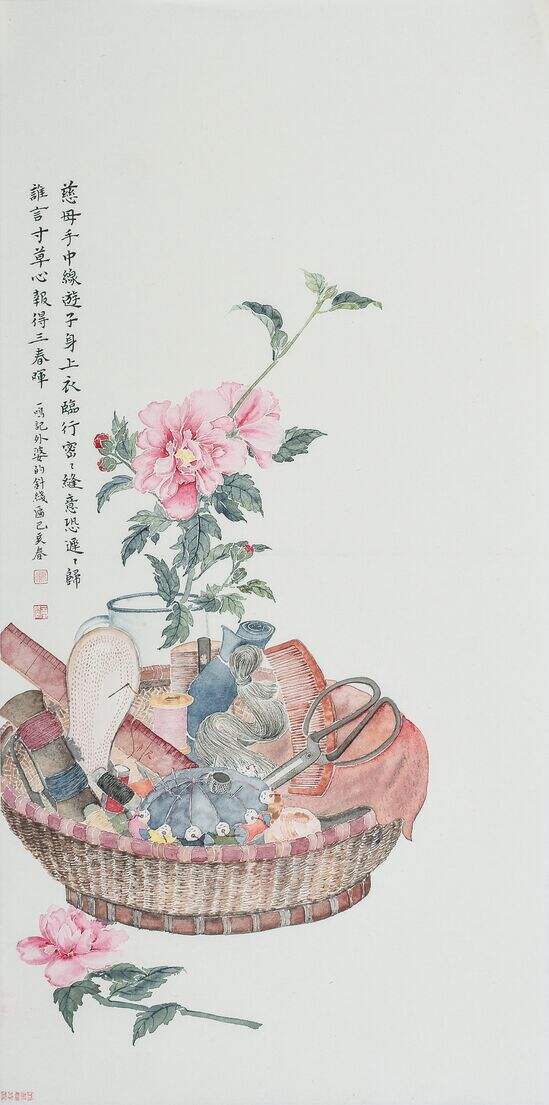 慈母手中線遊子身上衣臨行密〻縫意恐遲〻歸
誰言寸草心報得三春暉
一鳴記外婆的針綫匾己亥春